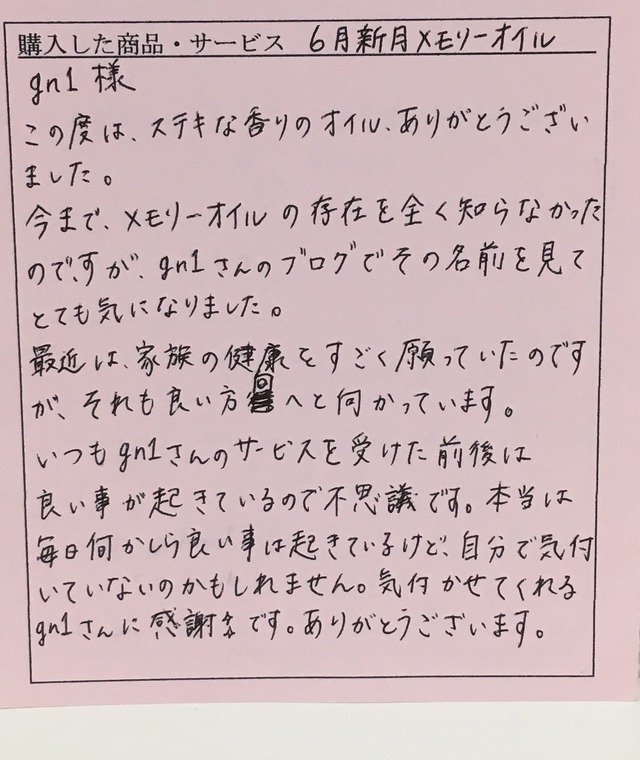 購入した商品・サービス 6月新月メモリーオイル
gn1 様
この度は、ステキな香りのオイル、ありがとうござい
ました。
今まで、メモリーオイルの存在を全く知らなかった
のですが、gn1さんのブログでその名前を見て
とても気になりました。
最近は、家族の健康をすごく願っていたのです
が、それも良い方向へと向かっています。
いつもgn1さんのサービスを受けた前後は
良い事が起きているので不思議です。本当は
毎日何かしら良い事は起きているけど、自分で気付
いていないのかもしれません。気付かせてくれる
gn1さんに感謝です。ありがとうございます。